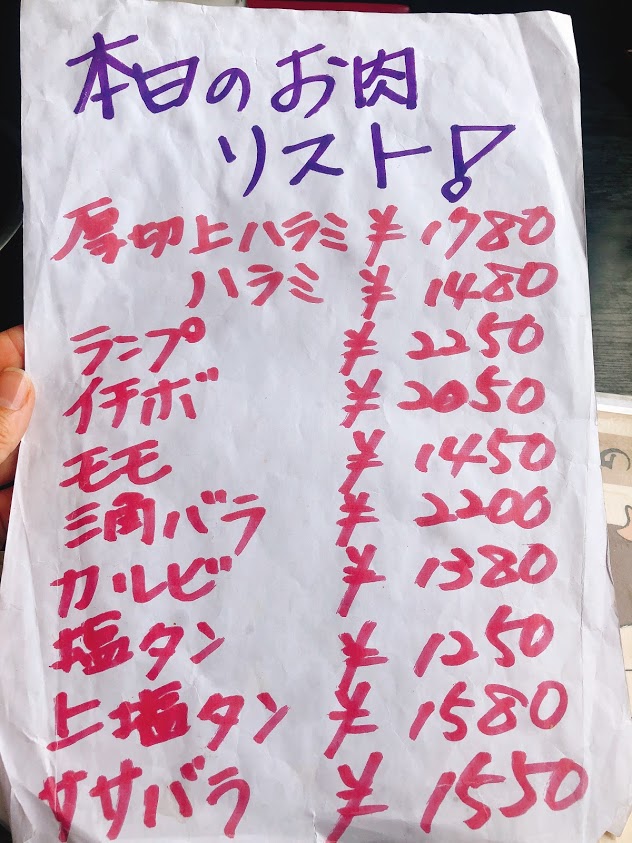 本日のお肉
リスト!
厚切上ハラミ ¥ 1780
ハラミ ¥ 1480
ランプ ¥ 2250
イチボ ¥ 2050
モモ ¥ 1450
三角バラ ¥ 2200
カルビ ¥ 1380
塩タン ¥ 1250
上塩タン ¥ 1580
ササバラ ¥ 1550